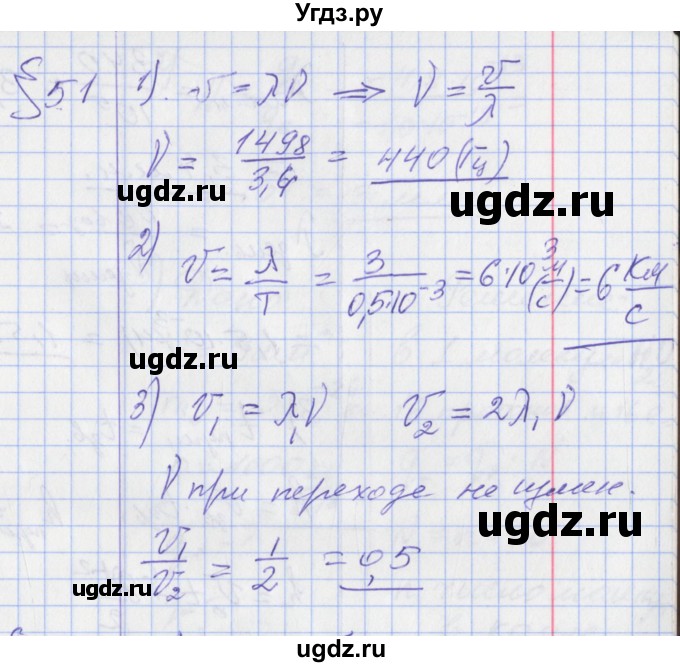 Угдз.ру
§ 51 1). v = λν ⟹ ν = v/λ
ν = 1498/3,4 = 440 (Гц)
ugdz.ru ugdz.ru
2) v = λ/T = 3/(0,5·10⁻³) = 6·10³ (м/с) = 6 км/с
ugdz.ru ugdz.ru
3) v₁ = λ₁ν v₂ = 2λ₁ν
ν при переходе не измен.
ugdz.ru
v₁/v₂ = 1/2 = 0,5
ugdz.ru
ugdz.ru